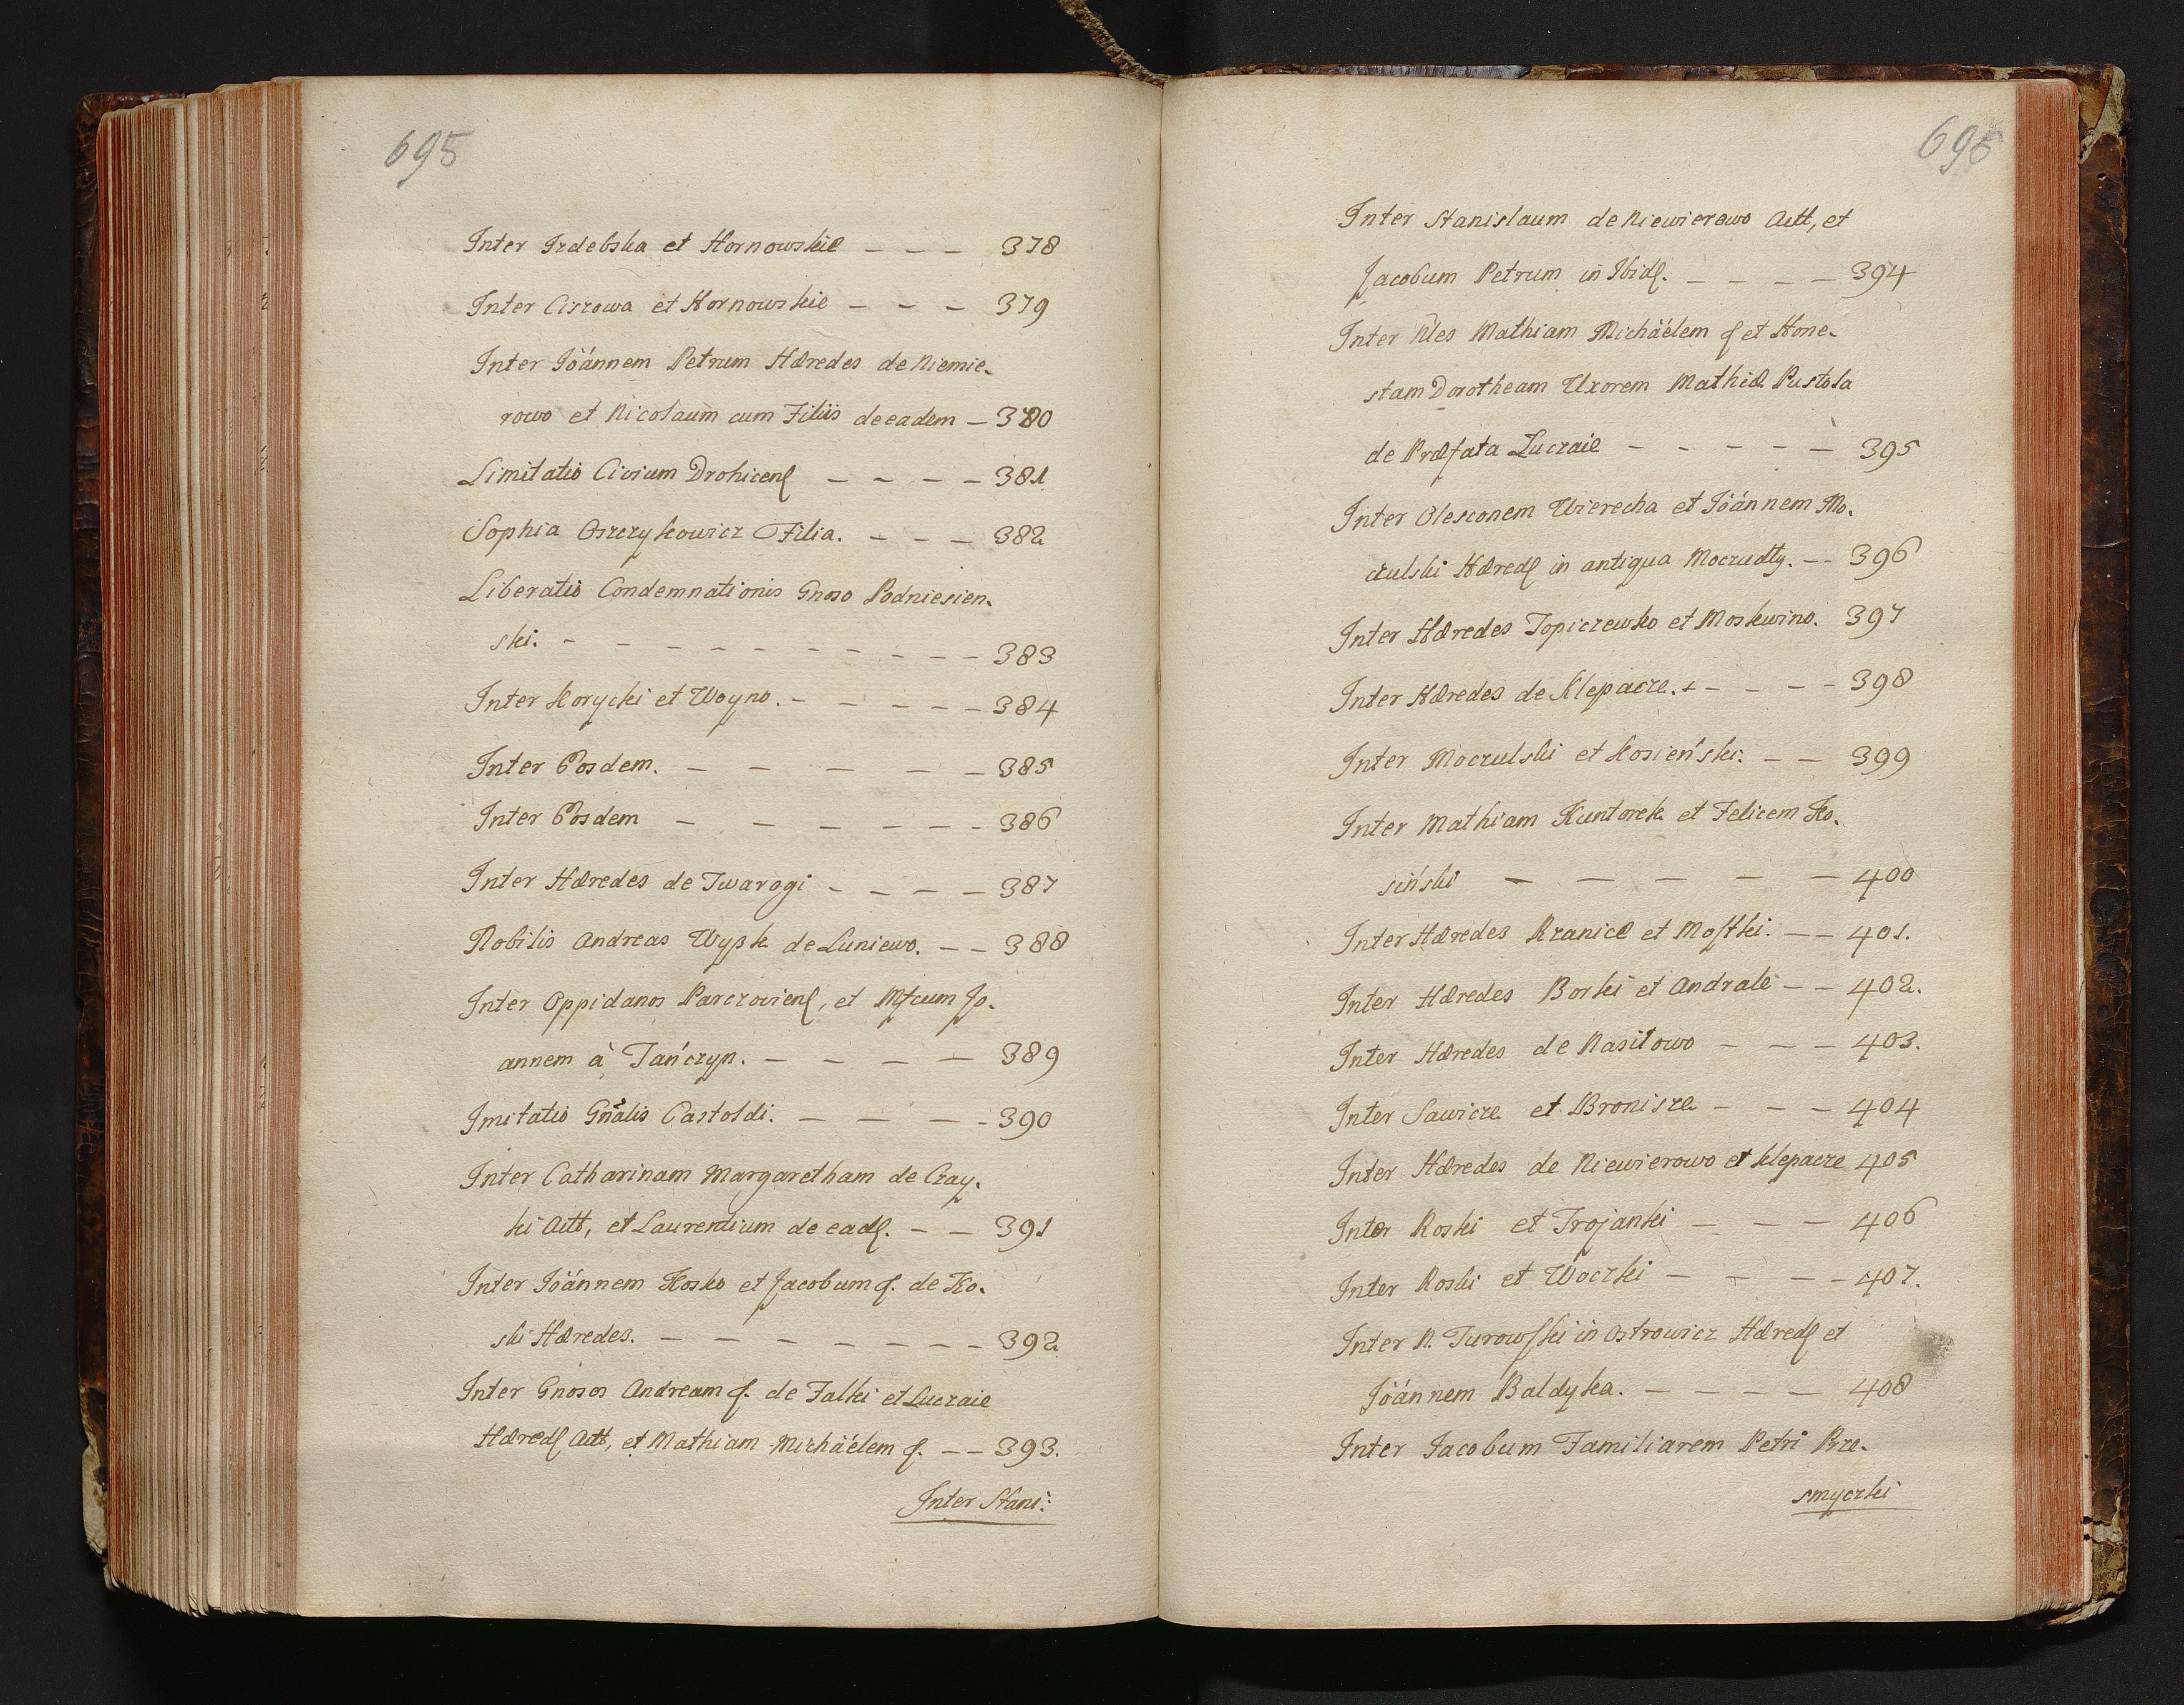 695
Inter Izdebska et Hornowskie - - - 378
Inter Ciszowa et Hornowskie - - - 379
Inter Jöánnem Petrum Hæredes de Niemie-
rowo et Nicolaum cum Filiis de eadem - 380
Limitatio Civium Drohicen - - - - 381
Sophia Oszczykowicz Filia. - - - 382
Liberatio Condemnationis Gnoso Podniesien-
ski. - - - - - - - - - - 383
Inter Korycki et Woyno. - - - - - 384
Inter Eosdem. - - - - - 385
Inter Eosdem - - - - - - 386
Inter Hæredes de Twarogi - - - - 387
Nobilis Andreas Wyszk de Luniewo. - - 388
Inter Oppidanos Parczovien, et Mfcum Jo-
annem à Tańczyn. - - - - 389
Imitatio Gnalis Castoldi. - - - - 390
Inter Catharinam Margaretham de Czay-
ki Act, et Laurentium de ead. - - 391
Inter Jöánnem Kosko et Jacobum de Ko-
ski Hæredes. - - - - - - - 392
Inter Gnosos Andream de Falki et Luczaie
Hæred Act, et Mathiam Michäélem - - 393.
Inter Stani:
695
Inter Stanislaum de Niewierowo Act, et
Jacobum Petrum in Ibid. - - - - 394
Inter Nles Mathiam Michäélem et Hone-
stam Dorotheam Uxorem Mathiæ Pustola
de Præfata Luczaie - - - - - 395
Inter Olesconem Wierecha et Jöánnem Mo-
czulski Hæred in antiqua Moczudły. - - 396
Inter Hæredes Topiczewko et Moskwino. 397
Inter Hæredes de Klepacze. - - - - 398
Inter Moczulski et Kosieński. - - 399
Inter Mathiam Kuntorek et Felicem Ko-
siński - - - - - - 400
Inter Hæredes Kranice et Mostki. - - 401.
Inter Hæredes Borki et Andrale - - 402.
Inter Hæredes de Nasitowo - - - 403.
Inter Sawicze et Bronisze - - - 404
Inter Hæredes de Niewierowo et Klepacze 405
Inter Roski et Trojanki - - - 406
Inter Roski et Woczki - - - - 407.
Inter N. Turowski in Ostrowicz Hæred et
Jöánnem Baldyka. - - - - 408
Inter Jacobum Familiarem Petri Prze-
smyczki